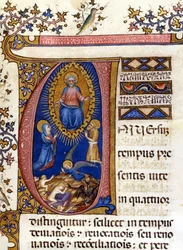 NIUERSU
tempus pre
sentis uite
in quatuor
distinguitur: scilicet in tempus
deuiatiōis et reuocatiōis seu reno
uatiōis et recōciliatiōis: et pere